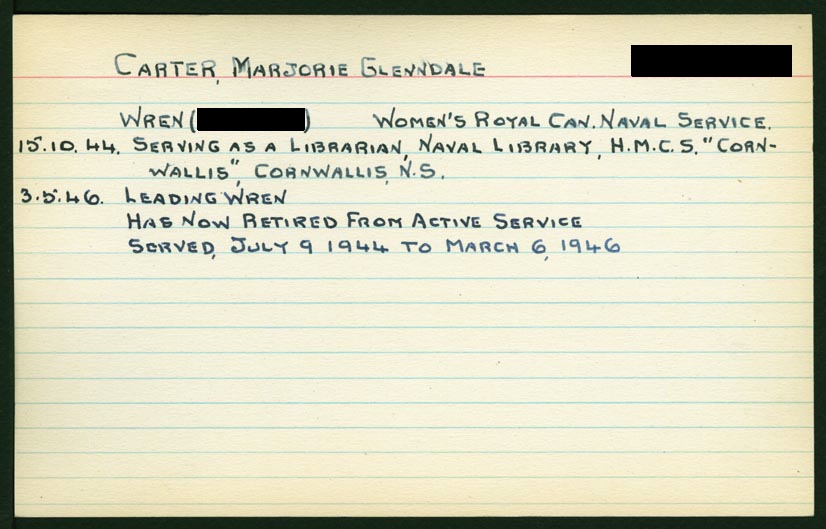 CARTER, MARJORIE GLENNDALE
WREN ( ) WOMEN'S ROYAL CAN. NAVAL SERVICE.
15.10.44. SERVING AS A LIBRARIAN, NAVAL LIBRARY, H.M.C.S. "CORN-
WALLIS", CORNWALLIS, N.S.
3.5.46. LEADING WREN
HAS NOW RETIRED FROM ACTIVE SERVICE
SERVED, JULY 9 1944 TO MARCH 6, 1946